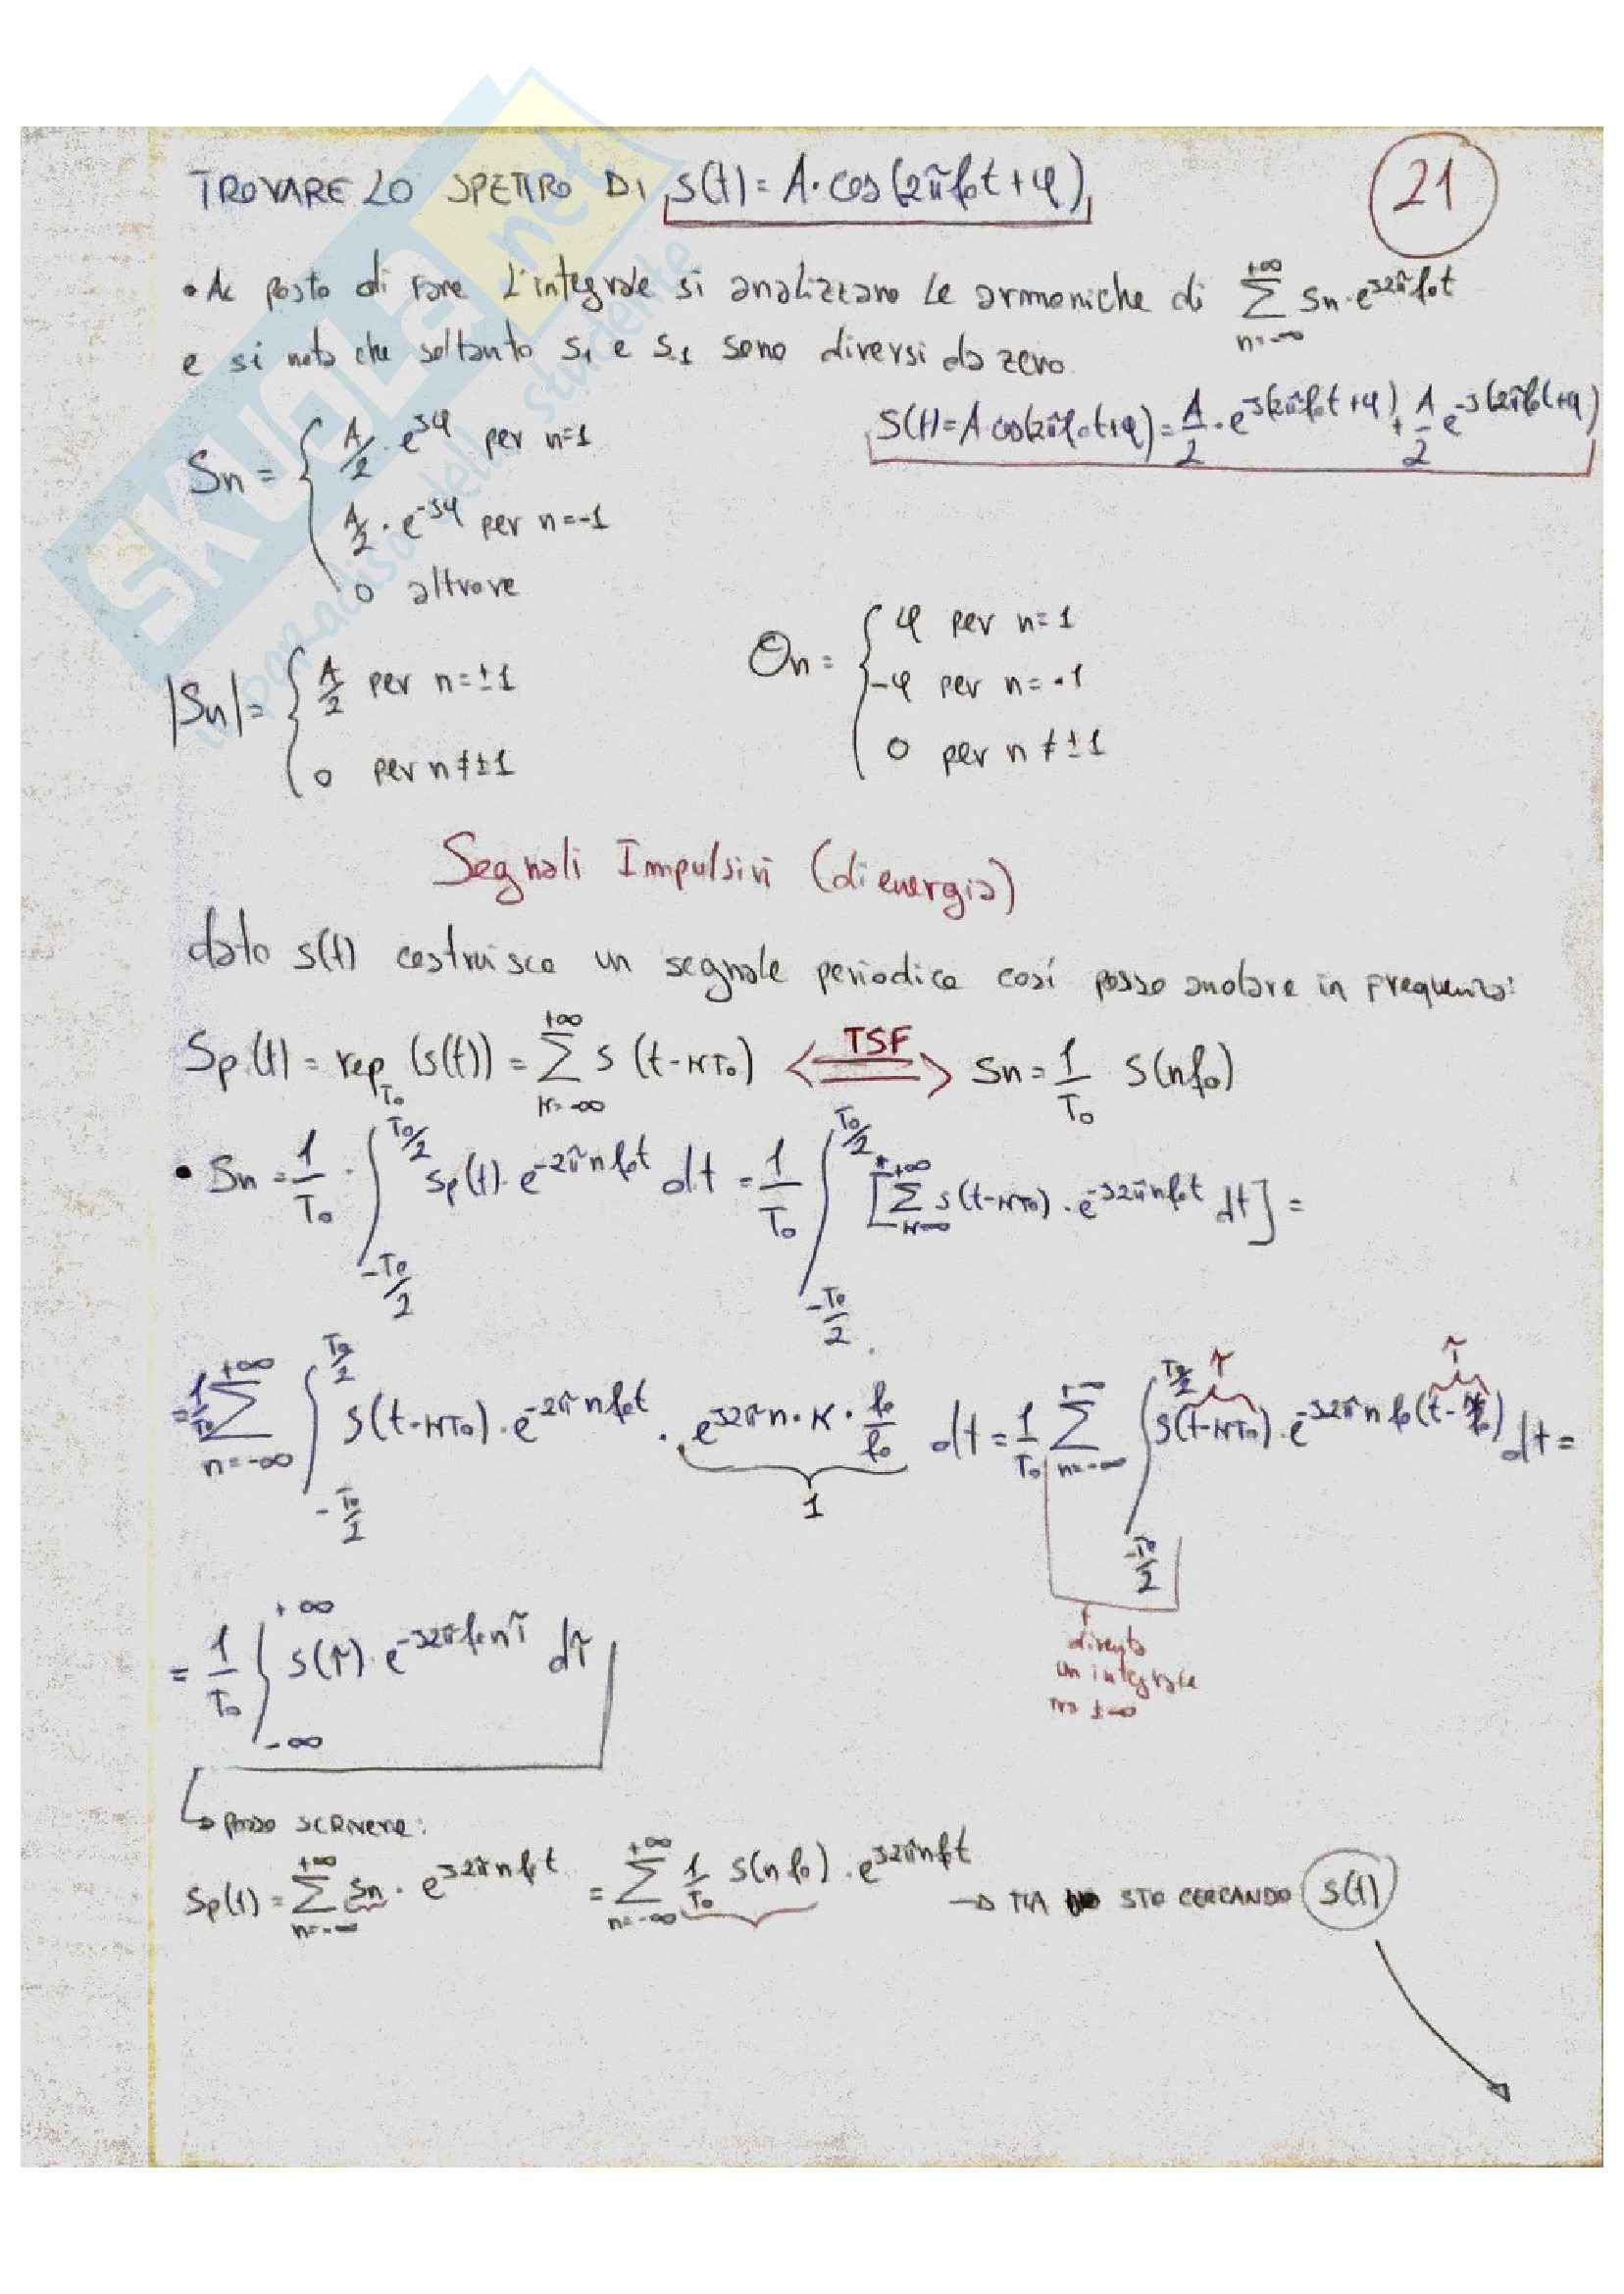 TROVARE LO SPETTRO DI s(t) = A·cos(2πf₀t+φ)
21
• Al posto di fare l'integrale si analizzano le armoniche di +∞ Σ n=-∞ Sn·e^j2πf₀t
e si nota che soltanto S₁ e S₋₁ sono diversi da zero.
S(t) = A cos(2πf₀t+φ) = A/2 · e^j(2πf₀t+φ) + A/2 e^-j(2πf₀t+φ)
Sn = { A/2 · e^jφ per n=1
A/2 · e^-jφ per n=-1
0 altrove
|Sn| = { A/2 per n=±1
0 per n≠±1
Θn = { φ per n=1
-φ per n=-1
0 per n≠±1
Segnali Impulsivi (di energia)
dato s(t) costruisco un segnale periodico così posso andare in frequenza:
Sp(t) = rep T₀ (s(t)) = +∞ Σ K=-∞ s(t-KT₀) <=TSF=> Sn = 1/T₀ S(nf₀)
• Sn = 1/T₀ · ∫ T₀/2 -T₀/2 Sp(t)·e^-2πnf₀t dt = 1/T₀ ∫ T₀/2 -T₀/2 [ +∞ Σ K=-∞ s(t-KT₀)·e^-j2πnf₀t dt] =
= 1/T₀ +∞ Σ n=-∞ ∫ T₀/2 -T₀/2 s(t-KT₀)·e^-2πnf₀t · e^j2πn·K·f₀/f₀ dt = 1/T₀ +∞ Σ n=-∞ ∫ T₀/2 -T₀/2 s(t-KT₀)·e^-j2πnf₀(t-K/f₀) dt =
1
τ
τ
diventa
un integrale
tra ±∞
= 1/T₀ ∫ +∞ -∞ s(τ)·e^-j2πf₀nτ dτ
↳ posso scrivere:
Sp(t) = +∞ Σ n=-∞ Sn · e^j2πnf₀t = +∞ Σ n=-∞ 1/T₀ S(nf₀)·e^j2πnf₀t → MA STO CERCANDO s(t)